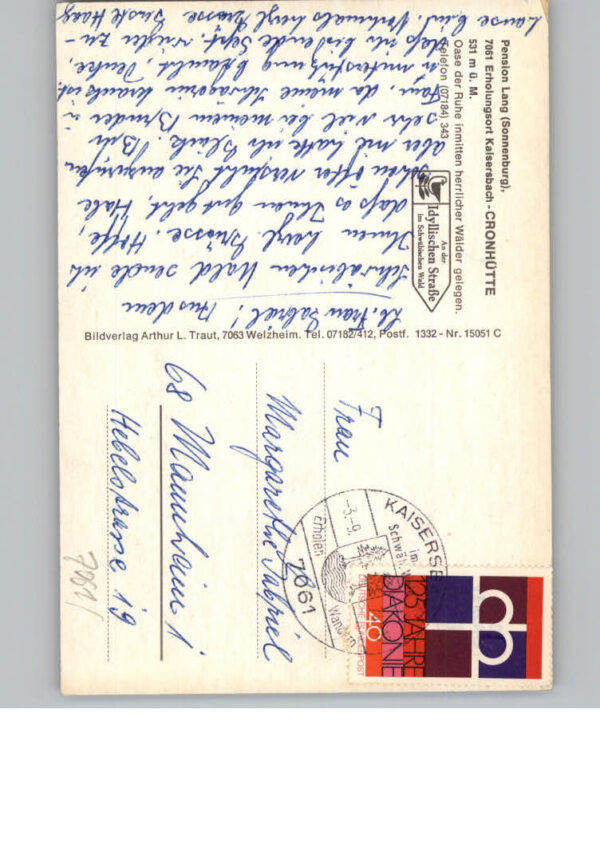 Pension Lang (Sonnenburg),
7061 Erholungsort Kaisersbach - CRONHÜTTE
531 m ü. M.
Oase der Ruhe inmitten herrlicher Wälder gelegen.
Telefon (07184) 343
An der
Idyllischen Straße
im Schwäbischen Wald
Lb. Frau Gabriel! Aus dem
Schwäbischen Wald sende ich
Ihnen herzl. Grüsse. Hoffe,
dass es Ihnen gut geht. Habe
schon öfter versucht Sie anzurufen
aber nie hatte ich Glück. Bin
sehr viel bei meinem Bruder u.
Frau, da meine Schwägerin krank ist
u. Unterstützung braucht. Denke,
dass ich bis Ende Sept. wieder zu-
hause bin. Nochmals herzl. Grüsse
Bildverlag Arthur L. Traut, 7063 Welzheim. Tel. 07182/412, Postf. 1332 - Nr. 15051 C
Frau
Margarethe Gabriel
68 Mannheim 1
Hebelstrasse 19
7061
KAISERSB
im
Schwäb. W
-3.-9.
Erholen
Wandern
7061
125 JAHRE
DIAKONIE
40